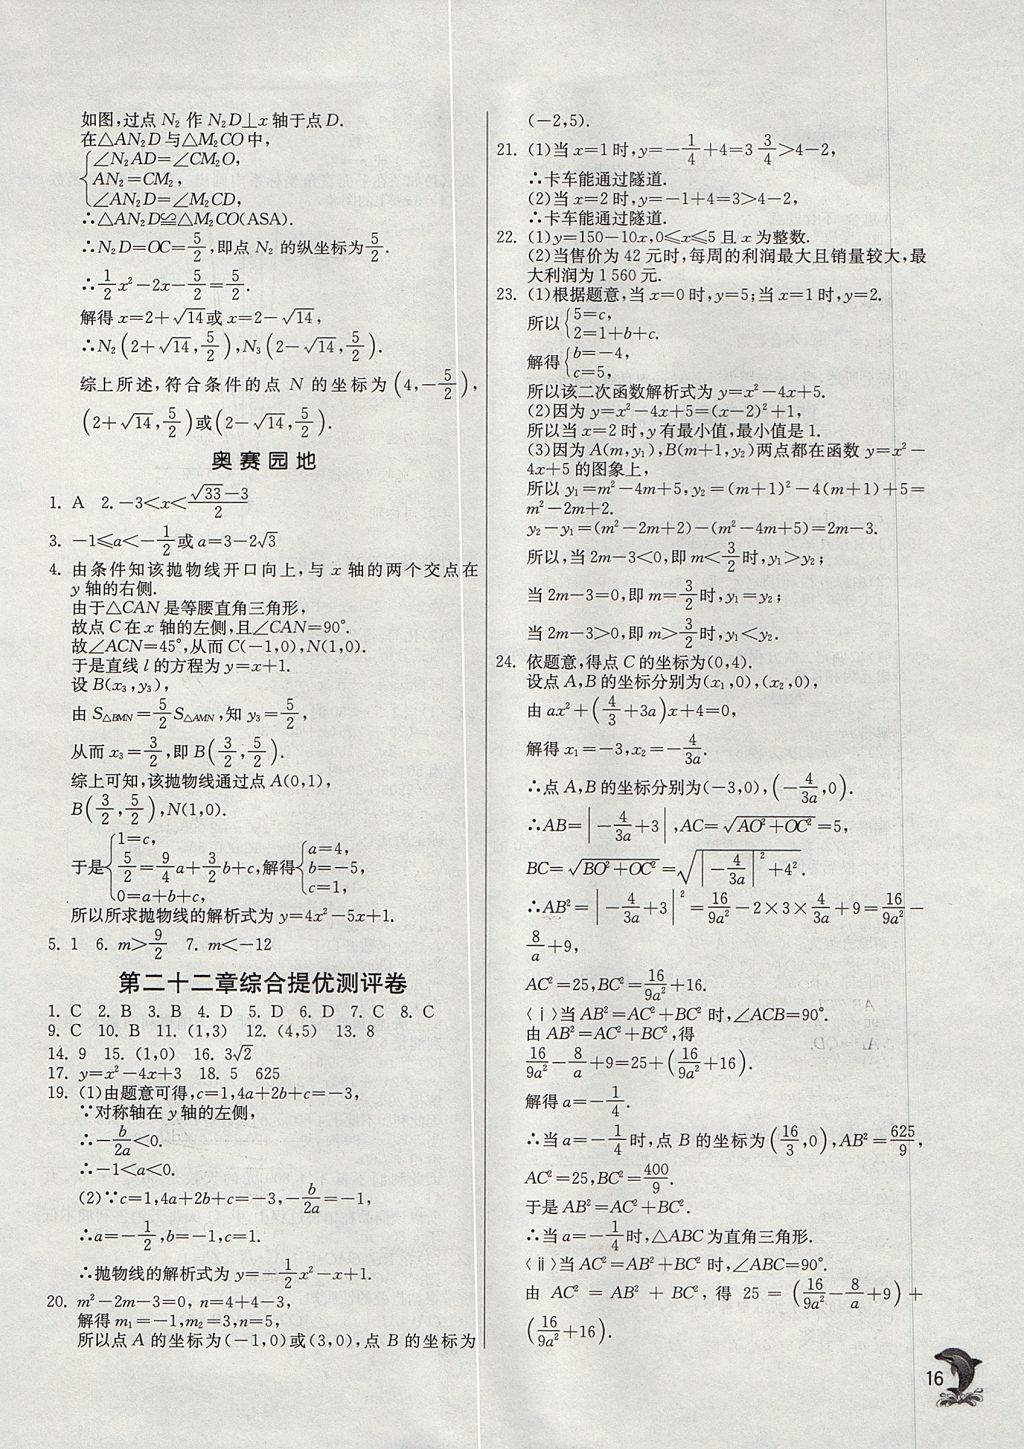 如图,过点N₂ 作 N₂D⊥x轴于点D.
在△AN₂D与△M₂CO中,
{∠N₂AD=∠CM₂O,
AN₂=CM₂,
∠AN₂D=∠M₂CD,
∴△AN₂D≌△M₂CO(ASA).
∴N₂D=OC=5/2,即点 N₂ 的纵坐标为5/2.
∴1/2x²-2x-5/2=5/2.
解得 x=2+√14或 x=2-√14,
∴N₂(2+√14,5/2),N₃(2-√14,5/2).
综上所述,符合条件的点 N 的坐标为(4,-5/2),
(2+√14,5/2)或(2-√14,5/2).
奥赛园地
1. A 2. -3<x<(√33-3)/2
3. -1≤a<-1/2或a=3-2√3
4. 由条件知该抛物线开口向上,与 x 轴的两个交点在
y 轴的右侧.
由于△CAN 是等腰直角三角形,
故点 C 在 x 轴的左侧,且∠CAN=90°.
故∠ACN=45°,从而 C(-1,0),N(1,0).
于是直线 l 的方程为 y=x+1.
设 B(x₃,y₃),
由 S△BMN=5/2S△AMN,知 y₃=5/2,
从而 x₃=3/2,即 B(3/2,5/2).
综上可知,该抛物线通过点 A(0,1),
B(3/2,5/2),N(1,0).
于是{1=c,
5/2=9/4a+3/2b+c,
0=a+b+c,
解得{a=4,
b=-5,
c=1,
所以所求抛物线的解析式为 y=4x²-5x+1.
5. 1 6. m>9/2 7. m<-12
第二十二章综合提优测评卷
1. C 2. B 3. B 4. D 5. D 6. D 7. C 8. C
9. C 10. B 11. (1,3) 12. (4,5) 13. 8
14. 9 15. (1,0) 16. 3√2
17. y=x²-4x+3 18. 5 625
19. (1)由题意可得,c=1,4a+2b+c=-3,
∵对称轴在 y 轴的左侧,
∴-b/2a<0.
∴-1<a<0.
(2)∵c=1,4a+2b+c=-3,-b/2a=-1,
∴a=-1/2,b=-1,c=1.
∴抛物线的解析式为 y=-1/2x²-x+1.
20. m²-2m-3=0, n=4+4-3,
解得 m₁=-1,m₂=3,n=5,
所以点 A 的坐标为(-1,0)或(3,0),点 B 的坐标为
(-2,5).
21. (1)当 x=1 时,y=-1/4+4=3 3/4>4-2,
∴卡车能通过隧道.
(2)当 x=2 时,y=-1+4=3>4-2,
∴卡车能通过隧道.
22. (1)y=150-10x,0≤x≤5 且 x 为整数.
(2)当售价为 42 元时,每周的利润最大且销量较大,最
大利润为 1 560 元.
23. (1)根据题意,当 x=0 时,y=5;当 x=1 时,y=2.
所以{5=c,
2=1+b+c.
解得{b=-4,
c=5,
所以该二次函数解析式为 y=x²-4x+5.
(2)因为 y=x²-4x+5=(x-2)²+1,
所以当 x=2 时,y 有最小值,最小值是 1.
(3)因为 A(m,y₁),B(m+1,y₂)两点都在函数 y=x²-
4x+5 的图象上,
所以 y₁=m²-4m+5,y₂=(m+1)²-4(m+1)+5=
m²-2m+2.
y₂-y₁=(m²-2m+2)-(m²-4m+5)=2m-3.
所以,当 2m-3<0,即 m<3/2时,y₁>y₂;
当 2m-3=0,即 m=3/2时,y₁=y₂;
当 2m-3>0,即 m>3/2时,y₁<y₂.
24. 依题意,得点 C 的坐标为(0,4).
设点 A,B 的坐标分别为(x₁,0),(x₂,0),
由 ax²+(4/3+3a)x+4=0,
解得 x₁=-3,x₂=-4/3a.
∴点 A,B 的坐标分别为(-3,0),(-4/3a,0).
∴AB=|-4/3a+3|,AC=√(AO²+OC²)=5,
BC=√(BO²+OC²)=√(|-4/3a|²+4²).
∴AB²=|-4/3a+3|²=16/9a²-2×3×4/3a+9=16/9a²-
8/a+9,
AC²=25,BC²=16/9a²+16.
〈ⅰ〉当 AB²=AC²+BC² 时,∠ACB=90°.
由 AB²=AC²+BC²,得
16/9a²-8/a+9=25+(16/9a²+16).
解得 a=-1/4.
∴当 a=-1/4时,点 B 的坐标为(16/3,0),AB²=625/9,
AC²=25,BC²=400/9.
于是 AB²=AC²+BC².
∴当 a=-1/4时,△ABC 为直角三角形.
〈ⅱ〉当 AC²=AB²+BC² 时,∠ABC=90°.
由 AC²=AB²+BC²,得 25=(16/9a²-8/a+9)+
(16/9a²+16).
16